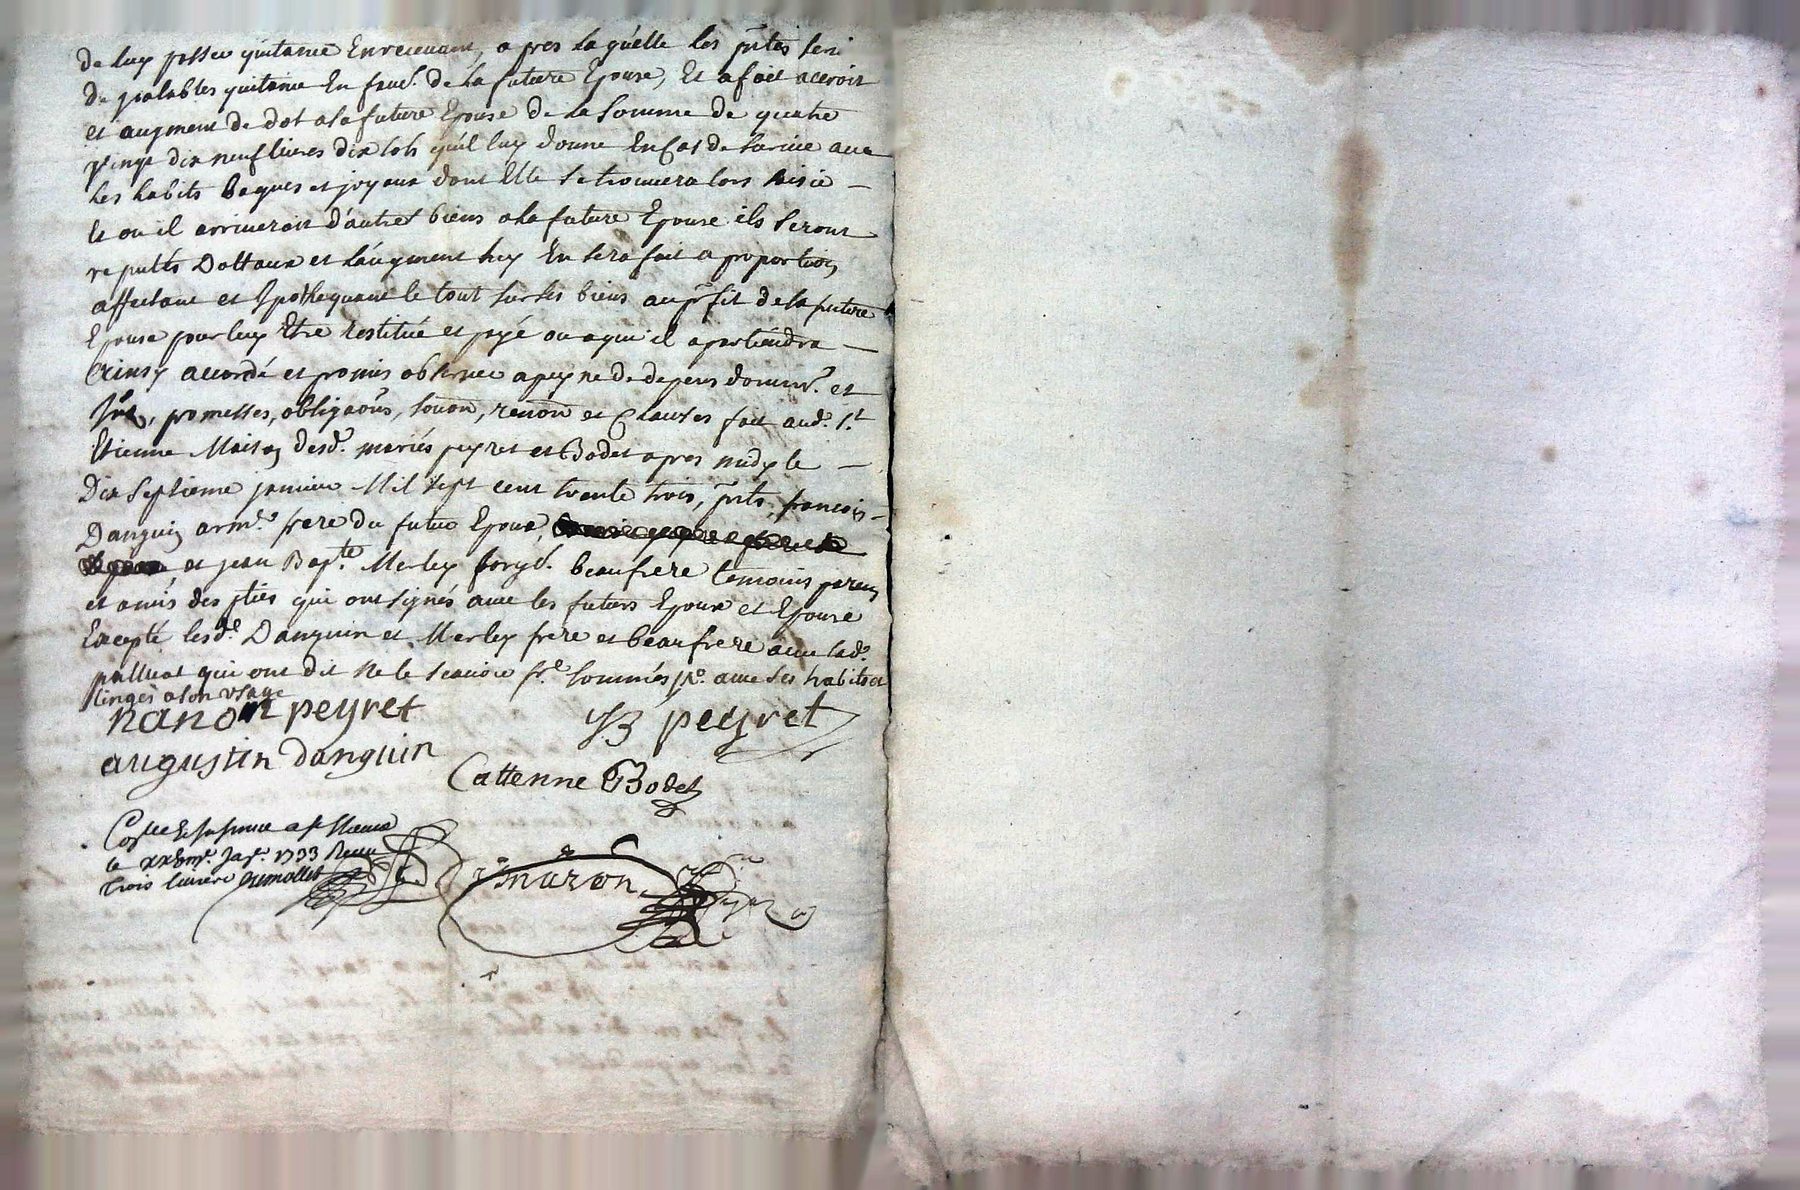 de luy passer quitance En recevant, a pres laquelle les prtes seri
de valables quitance En faud. de la future Epouse, Et a fait acroit
et augment de dot a la future Epouse de la somme de quatre
Vingt dix neuf livres dix sols quil luy donne En cas de survie avec
ses habits bagues et joyaux dont Elle se trouvera lors saisie —
Et ou il arriveroit d'autres biens a la future Epouse ils seront
reputés Dottaux et l'augment luy En sera fait a proportion
affectant et Ypothequant le tout sur ses biens au profit de la future
Epouse pour luy Etre restitué et payé ou a qui il apartiendra —
Ainsy accordé et promis observer a peyne de depens dommr. et
Jnts, promesses, obligaons, souon, renon et Clauses fait aud. St
Etienne Maison desd. mariés peyret et Bodet apres midy le —
Dix septieme janvier Mil sept cent trente trois, prts, francois
Danguin armr. frere du futur Epoux,
et jean Bapte. Merley forgr. beaufrere temoins parens
et amis des pties qui ont signés avec les futurs Epoux et Epouse
Excepté lesde. Danguin et Merley frere et beaufrere avec lad.
palluat qui ont dit ne le scavoir fe. sommés avec ses habits et
linges a son usage
nanon peyret
JB peyret
augustin danguin
Catterine Bodet
Conlle et Insinué a St Etienne
le xx8me. Jar. 1733 Receu
trois livres Gumollet
mazon